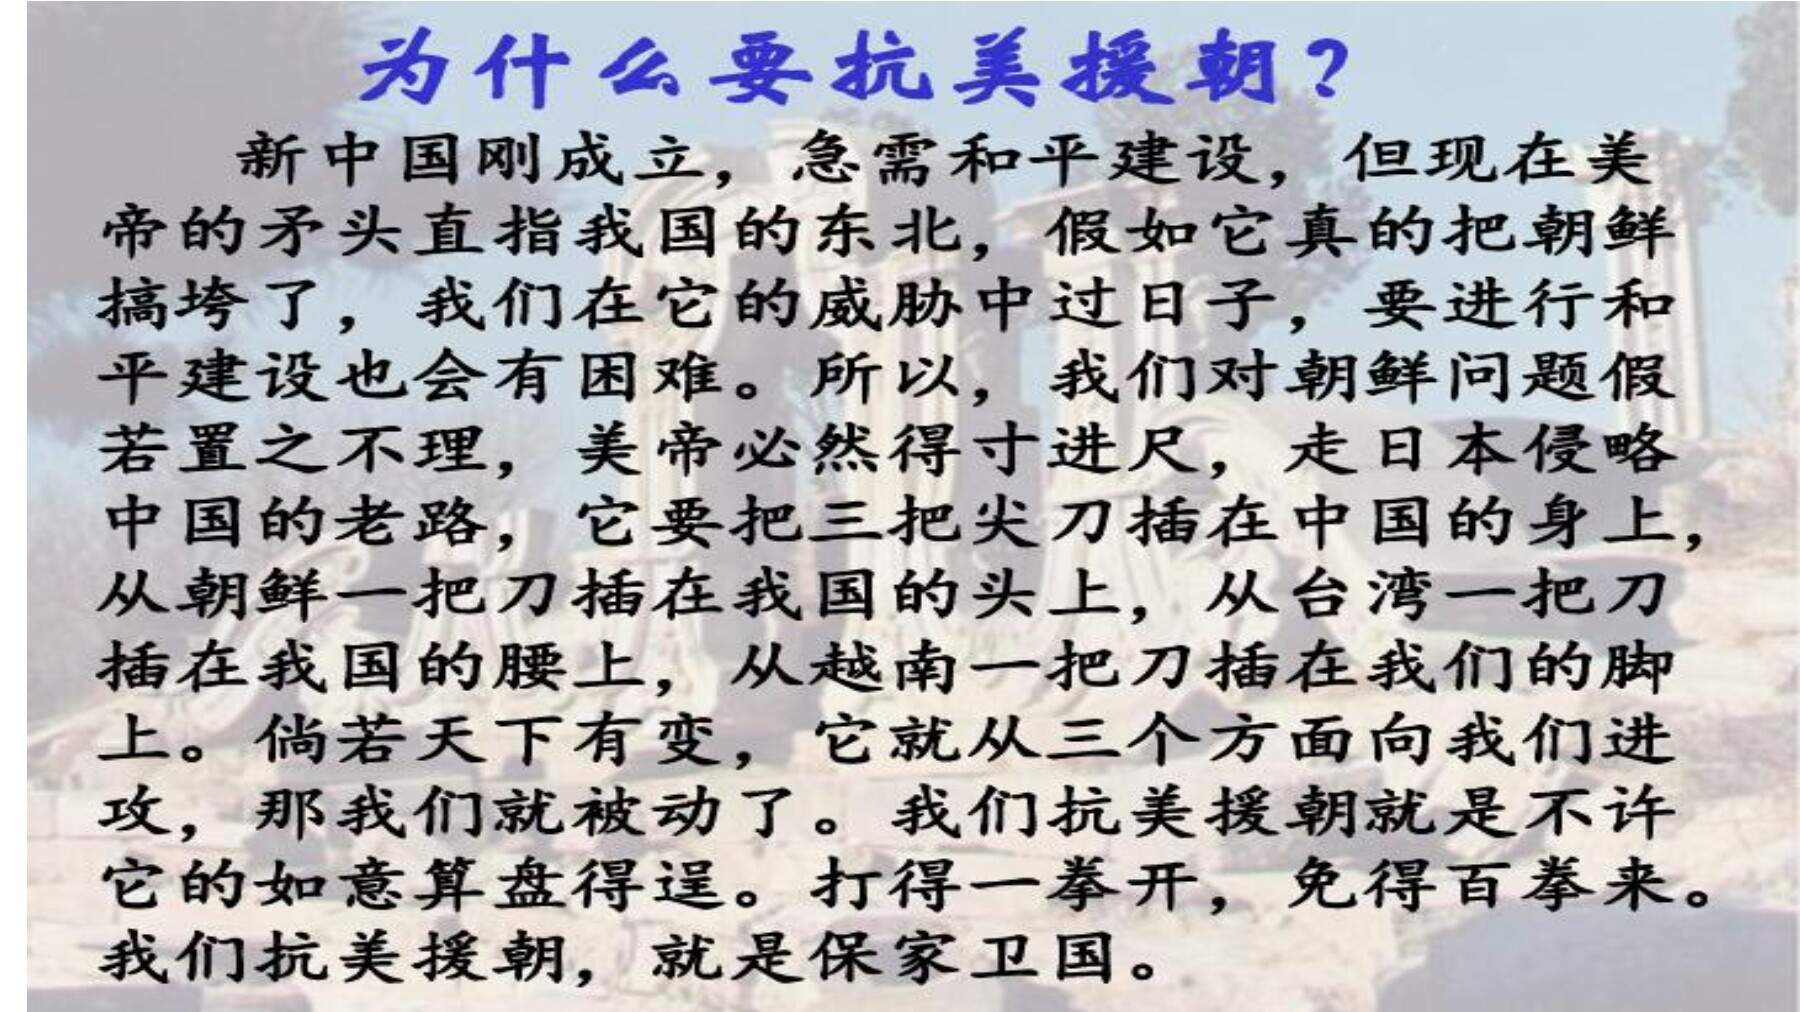 为什么要抗美援朝？
新中国刚成立，急需和平建设，但现在美
帝的矛头直指我国的东北，假如它真的把朝鲜
搞垮了，我们在它的威胁中过日子，要进行和
平建设也会有困难。所以，我们对朝鲜问题假
若置之不理，美帝必然得寸进尺，走日本侵略
中国的老路，它要把三把尖刀插在中国的身上，
从朝鲜一把刀插在我国的头上，从台湾一把刀
插在我国的腰上，从越南一把刀插在我们的脚
上。倘若天下有变，它就从三个方面向我们进
攻，那我们就被动了。我们抗美援朝就是不许
它的如意算盘得逞。打得一拳开，免得百拳来。
我们抗美援朝，就是保家卫国。